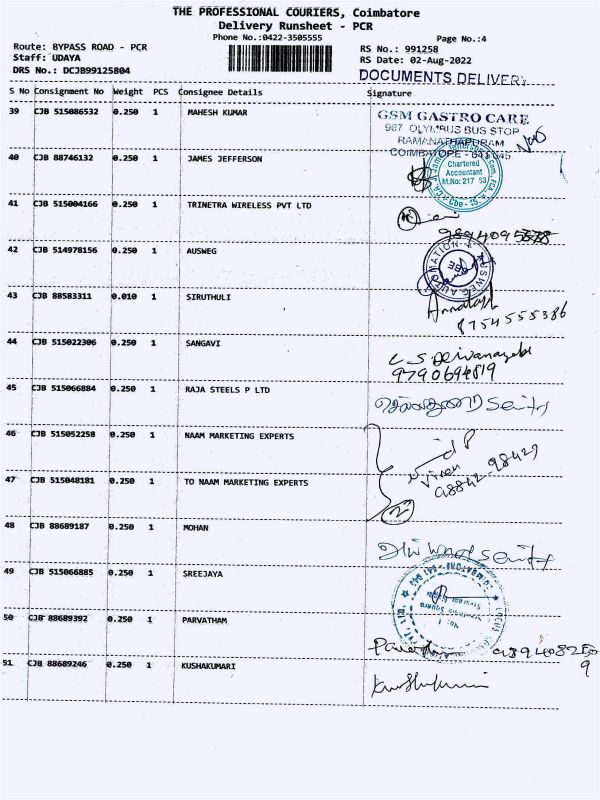 THE PROFESSIONAL COURIERS, Coimbatore
Delivery Runsheet - PCR
Phone No.:0422-3505555
Page No.:4
Route: BYPASS ROAD - PCR
RS No.: 991258
Staff: UDAYA
RS Date: 02-Aug-2022
DRS No.: DCJB99125804
DOCUMENTS DELIVERY
S No Consignment No Weight PCS Consignee Details Signature
39 CJB 515086532 0.250 1 MAHESH KUMAR
GSM GASTRO CARE
967 OLYMBUS BUS STOP
RAMANATHAPURAM
COIMBATORE - 641045
40 CJB 88746132 0.250 1 JAMES JEFFERSON
Chartered
Accountant
M.No: 217
41 CJB 515004166 0.250 1 TRINETRA WIRELESS PVT LTD
42 CJB 514978156 0.250 1 AUSWEG
43 CJB 88583311 0.010 1 SIRUTHULI
8754555386
44 CJB 515022306 0.250 1 SANGAVI
9790694819
45 CJB 515066884 0.250 1 RAJA STEELS P LTD
46 CJB 515052258 0.250 1 NAAM MARKETING EXPERTS
98842-98429
47 CJB 515048181 0.250 1 TO NAAM MARKETING EXPERTS
2
48 CJB 88689187 0.250 1 MOHAN
49 CJB 515066885 0.250 1 SREEJAYA
50 CJB 88689392 0.250 1 PARVATHAM
51 CJB 88689246 0.250 1 KUSHAKUMARI